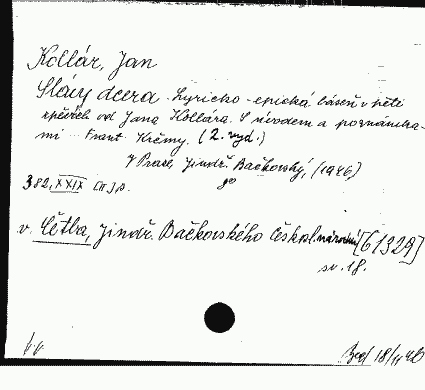 Kollár, Jan
Slávy dcera. Lyricko-epická báseň v pěti
zpěvích od Jana Kollára. S úvodem a poznámka-
mi Frant. Krčmy. (2. vyd.)
V Praze, Jindř. Bačkovský, (1946)
8°
382, XXIX
v. Četba, Jindř. Bačkovského českosl. národní [61329]
sv. 18.
18/11 46